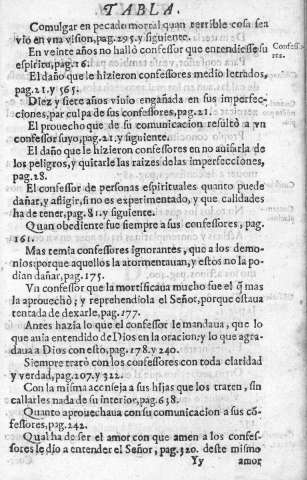 TABLA.
Comulgar en pecado mortal quan terrible cosa sea
vio en vna vision, pag. 295. y siguiente.
En veinte años no hallò confessor que entendiesse su
espiritu, pag. 16.
Confesso-
res.
El daño que le hizieron confessores medio letrados,
pag. 21. y 565.
Diez y siete años viuio engañada en sus imperfec-
ciones, par culpa de sus confessores, pag. 21.
El prouecho que de su comunicacion resultò a vn
confessor suyo, pag. 21. y siguiente.
El daño que le hizieron confessores en no auisarla de
los peligros, y quitarle las raizes de las imperfecciones,
pag. 28.
El confessor de personas espirituales quanto puede
dañar, y afligir, si no es experimentado, y que calidades
ha de tener, pag. 81. y siguiente.
Quan obediente fue siempre a sus confessores, pag.
161.
Mas temia confessores ignorantes, que a los demo-
nios: porque aquellos la atormentauan, y estos no la po-
dian dañar, pag. 175.
Vn confessor que la mortificaua mucho fue el q̃ mas
la aprouechò; y reprehendiola el Señor, porque estaua
tentada de dexarle, pag. 177.
Antes hazia lo que el confessor le mandaua, que lo
que auia entendido de Dios en la oracion: y lo que agra-
daua a Dios con esto, pag. 178. y 240.
Siempre tratò con los confessores con toda claridad
y verdad, pag. 207. y 322.
Con la misma aconseja a sus hijas que los traten, sin
callarles nada de su interior, pag. 638.
Quanto aprouechaua con su comunicacion a sus cõ-
fessores, pag. 242.
Qual ha de ser el amor con que amen a los confes-
sores le dio a entender el Señor, pag. 320. deste mismo
Yy amor